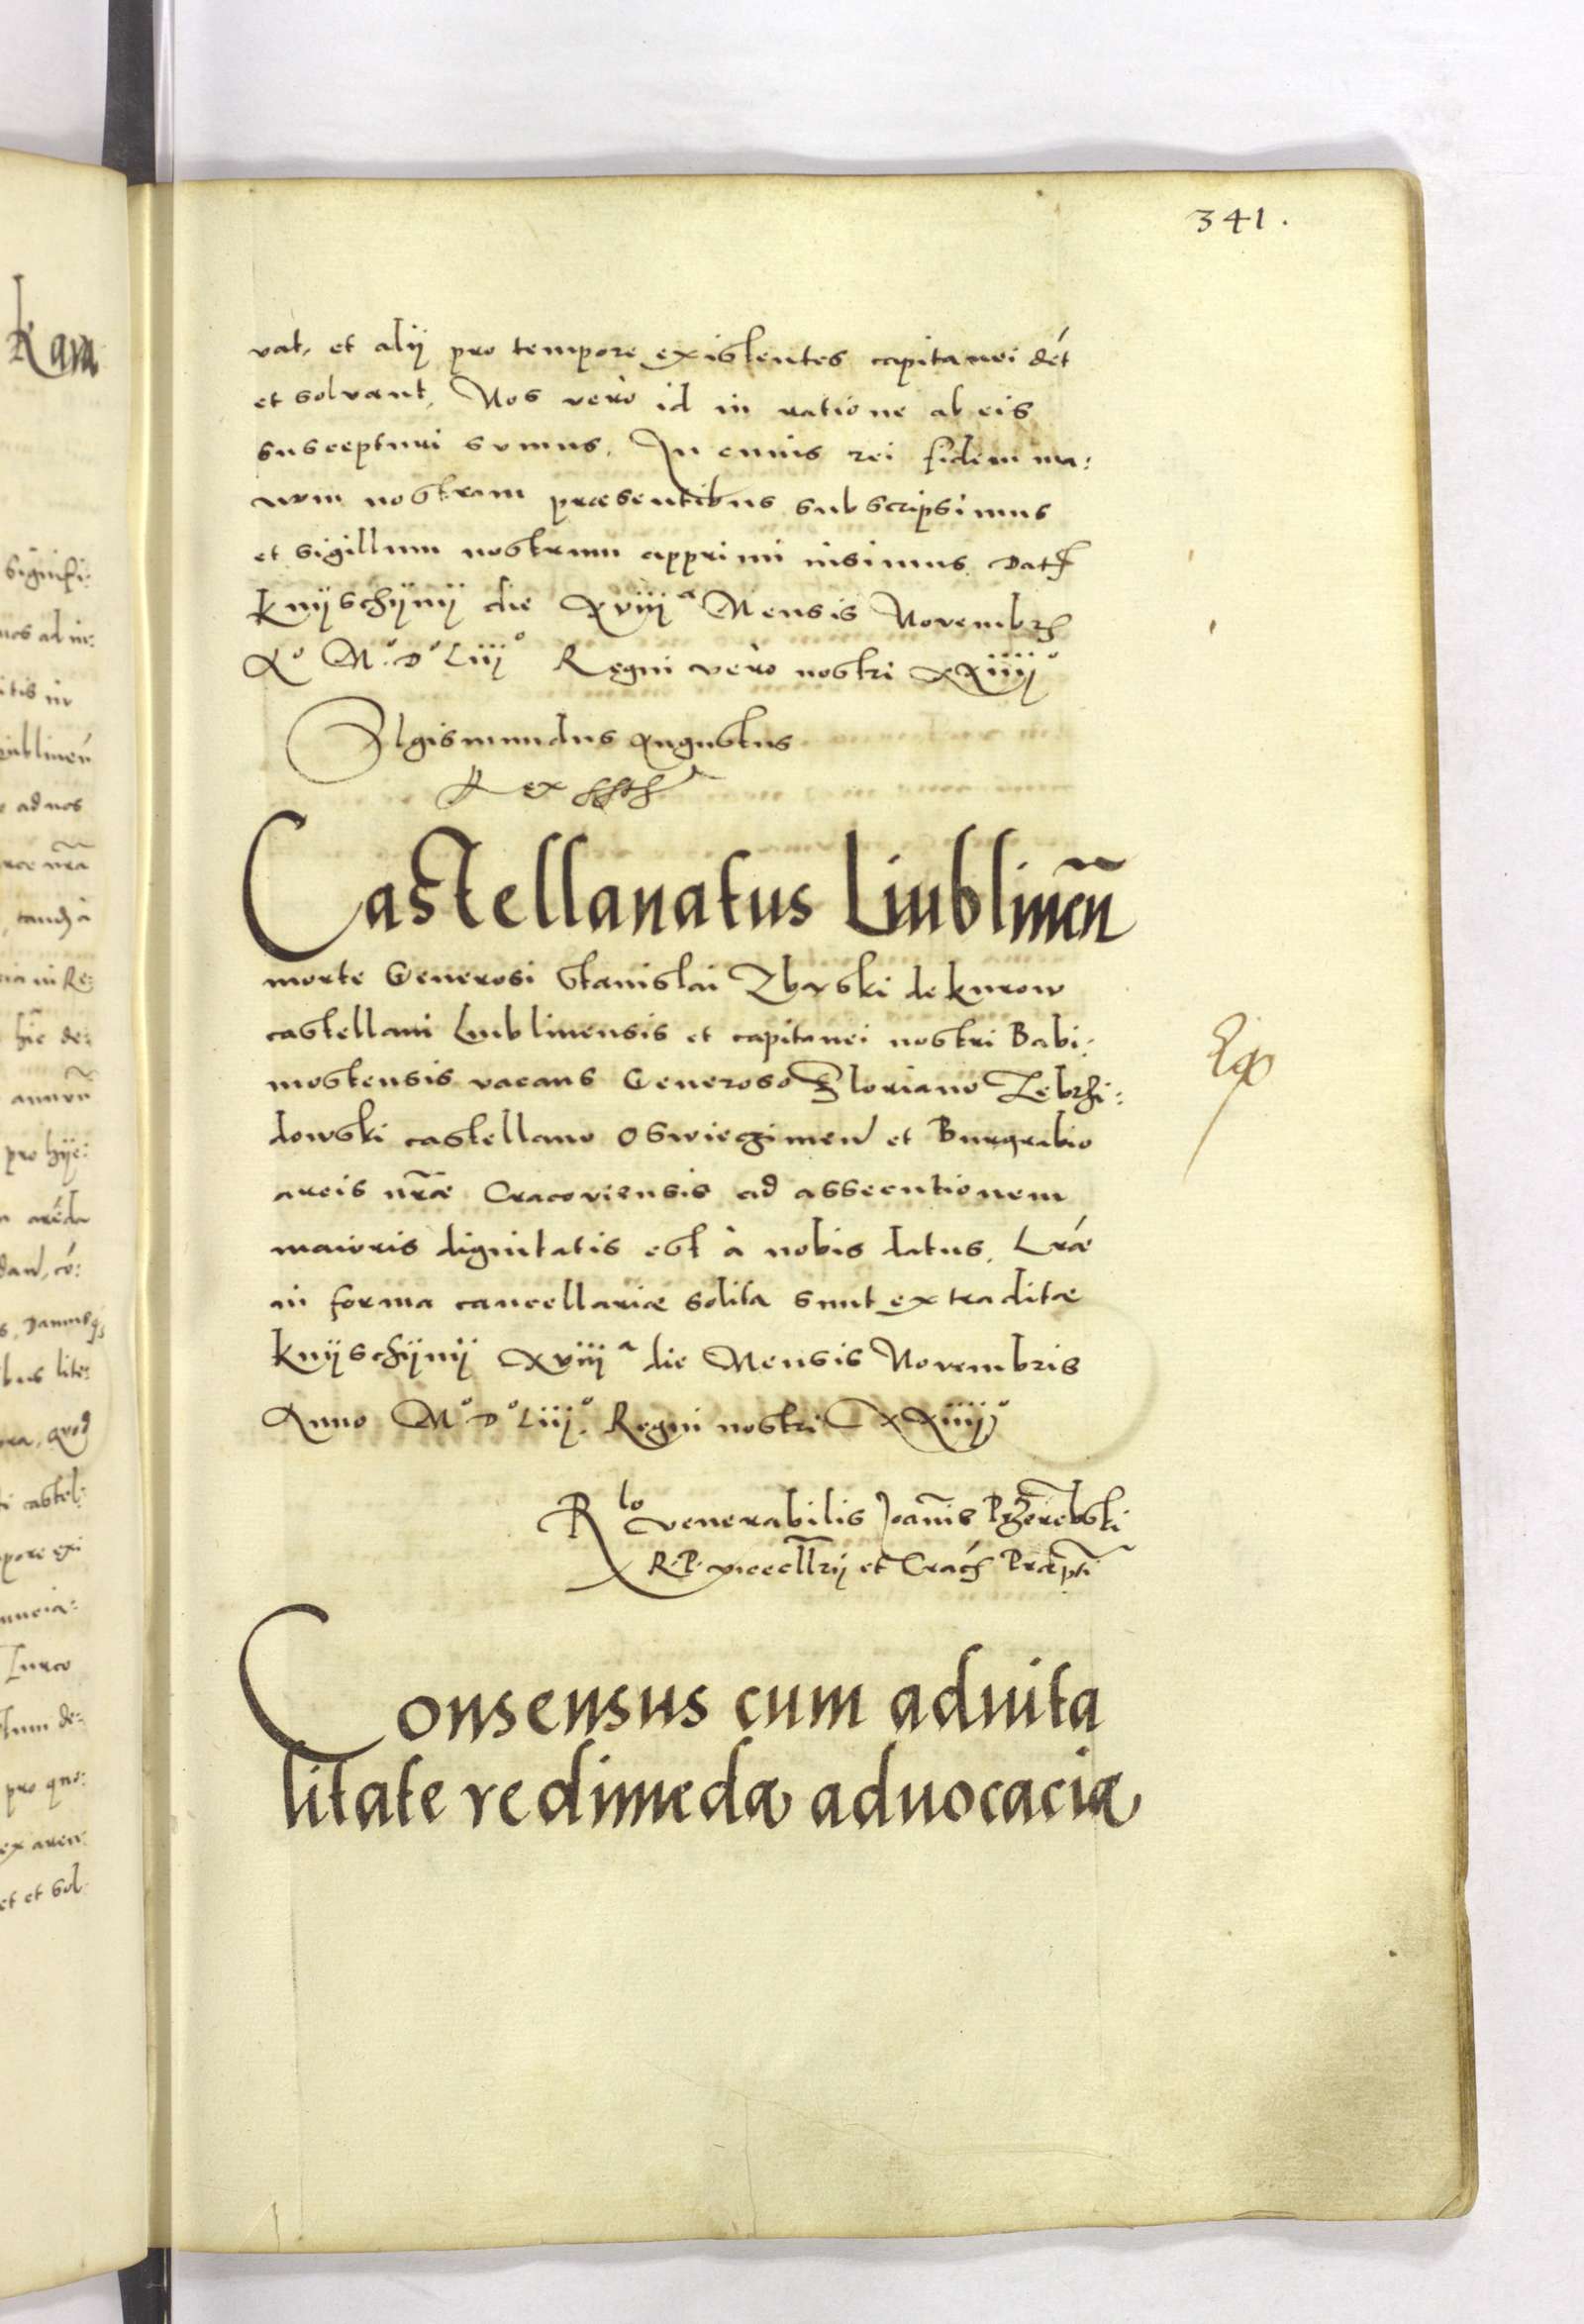 341.
vat, et alij pro tempore existentes capitanei dét
et solvant, Nos verò id in ratione ab eis
suscepturi sumus. In cuius rei fidem ma:
num nostram præsentibus subscripsimus
et sigillum nostrum apprimi iusimus. Dat
Knijschijnij die XViij a Mensis Novembr
Ao Mo Do Liijo Regni vero nostri XXiiijo
Sigismundus Augustus
Rex
Castellanatus Liublineñ
morte Generosi Stanislai Zbąski de Kurow
castellani Lublinensis et capitanei nostri Babi:
mostensis vacans Generoso Floriano Zebrzi:
dowski castellano Oswieczimen et Burgrabio
arcis nr̃æ Cracoviensis ad assecutionem
maioris dignitatis est à nobis datus. Lræ
in forma cancellariæ solita sunt extraditæ
Knijschijnij XViij a die Mensis Novembris
Anno Mo Do Liijo. Regni nostri XXiiijo
Rlo venerabilis Joañis Przerebski
R. P. vicecllrij et Crac Præpti
Consensus cum aduita
litate redimēda aduocacia